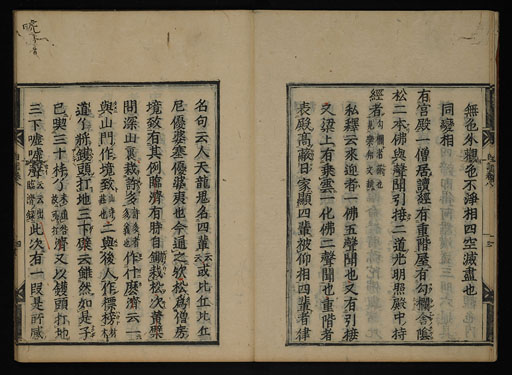 無色外觀色不淨相四空滅盡也
同變相
有宮殿一僧居讀經有重階屋有勾欄含陰
松二本佛與聲聞引接二道光明照殿中持
經者
私釋云來迎者一佛五聲聞也又有引接
又梁上有乘雲一化佛二聲聞也重階者
表殿高蔽日家顯四輩被仰相四輩者律
名句云人天龍鬼名四輩云云或比丘比丘
尼優婆塞優婆夷也今通之欤松爲僧房
境致有其例臨濟有時自钁栽松次黃檗
問深山裏栽許多作什麼濟云一
與山門作境致二與後人作標榜
道了將钁頭打地三下檗云雖然如是子
已喫三十棒了濟又以钁頭打地
三下噓噓此次有一段是許臧